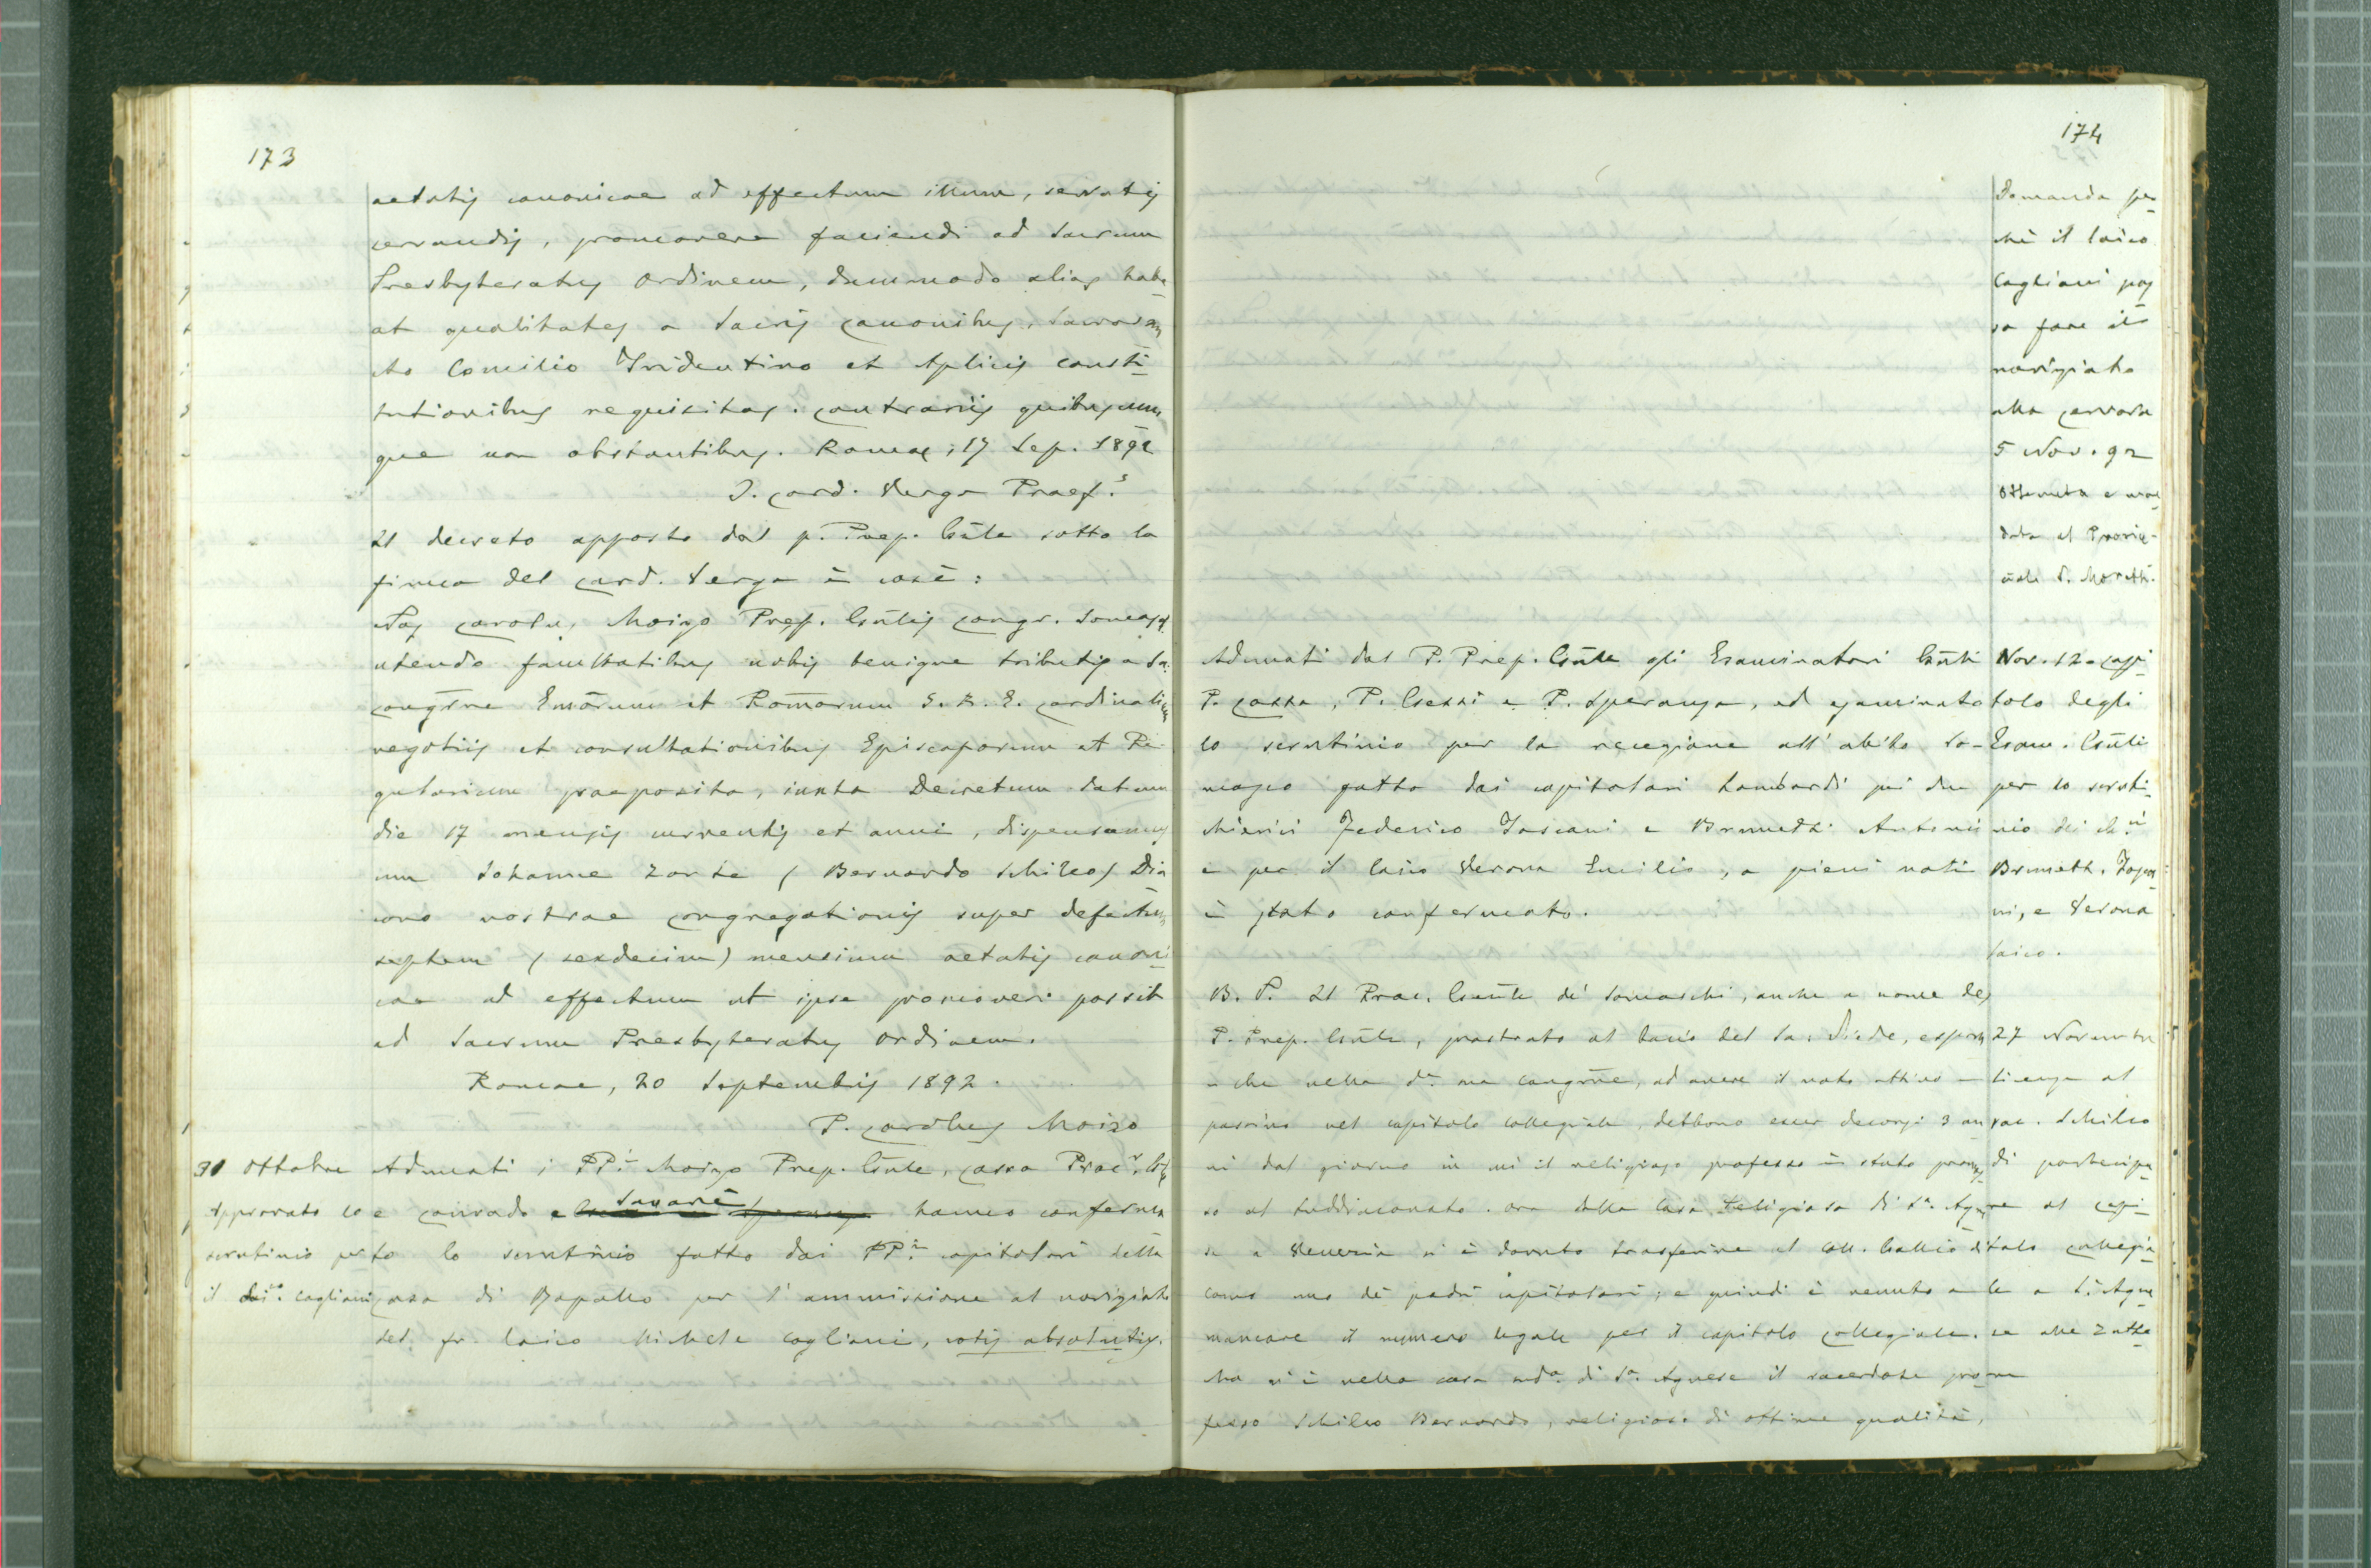 173
aetatis canonicae ad effectum illum, servatis
servandis, promovere faciendi ad Sacrum
Presbyteratus Ordinem, dummodo alias habe
at qualitates a Sacris Canonibus, Sacrosan
cto Concilio Tridentino et Aplicis consti
tutionibus requisitas. Contrariis quibuscum
que non obstantibus. Romae, 17 Sep. 1892
I. Card. Verga Praef.s
Il decreto apposto dal p. Prep. Gnle sotto la
firma del Card. Verga è così:
Nos Carolus Moizo Prep. Gnlis Congr. Somasch.
utendo facultatibus nobis benigne tributis a Sa.
Congrne Emorum et Romorum S. R. E. Cardinalium
negotiis et consultationibus Episcoporum et Re
gularium praeposita, iuxta Decretum datum
die 17 mensis currentis et anni, dispensamus
cum Iohanne Zonta (Bernardo Schileo) Dia
cono nostrae Congregationis super defectum
septem (sexdecim) mensium aetatis canoni
cae ad effectum ut ipse promoveri possit
ad Sacrum Presbyteratus Ordinem.
Romae, 20 Septembris 1892.
P. Carolus Moizo
31 Ottobre
Approvato lo
scrutinio per
il lai.co Cagliani
Adunati i PP.i Moizo Prep. Gnle, Cassa Proc.r
e Conrado e Savarè hanno conferma
to lo scrutinio fatto dai PP.i capitolari della
casa di Rapallo per l'ammissione al noviziato
del fr. laico Michele Cagliani, votis absolutis.
174
Domanda per
chè il laico
Cagliani pos
sa fare il
noviziato
alla Cervara
5 Nov. 92
Ottenuta e man
data al Provin-
ciale P. Moretti.
Adunati dal P. Prep. Gnle gli Esaminatori Gnli
P. Cassa, P. Gessi e P. Speranza, ed esaminato
lo scrutinio per la recezione all'abito So-
masco fatto dai capitolari Lombardi pei due
chierici Federico Toscani e Brunetti Antonio
e per il laico Verona Emilio, a pieni voti
è stato confermato.
Nov. 12. Capi
tolo degli
Esam. Gnli
per lo scruti
nio dei ch.i
Brunetti, Tosca
ni, e Verona
laico.
B. P. Il Proc. Gnle de' Somaschi, anche a nome del
P. Prep. Gnle, prostrato al bacio del Sa. Piede, espone
che nella da. sua Congrne, ad avere il voto attivo e
passivo nel capitolo collegiale, debbono esser decorsi 3 an
ni dal giorno in cui il religioso professo è stato promos
so al suddiaconato. Ora dalla Casa religiosa di Sa. Agne
se a Venezia si è dovuto trasferire al Coll. Gallio di
Como uno dei padri capitolari; e quindi è venuto a
mancare il numero legale per il capitolo collegiale.
Ma vi è nella casa mda. di Sa. Agnese il sacerdote pro
fesso Schileo Bernardo, religioso di ottime qualità,
27 Novembre
licenza al
sac. Schileo
di partecipa
re al capi
tolo collegia
le a S. Agne
se alle Zatte
re